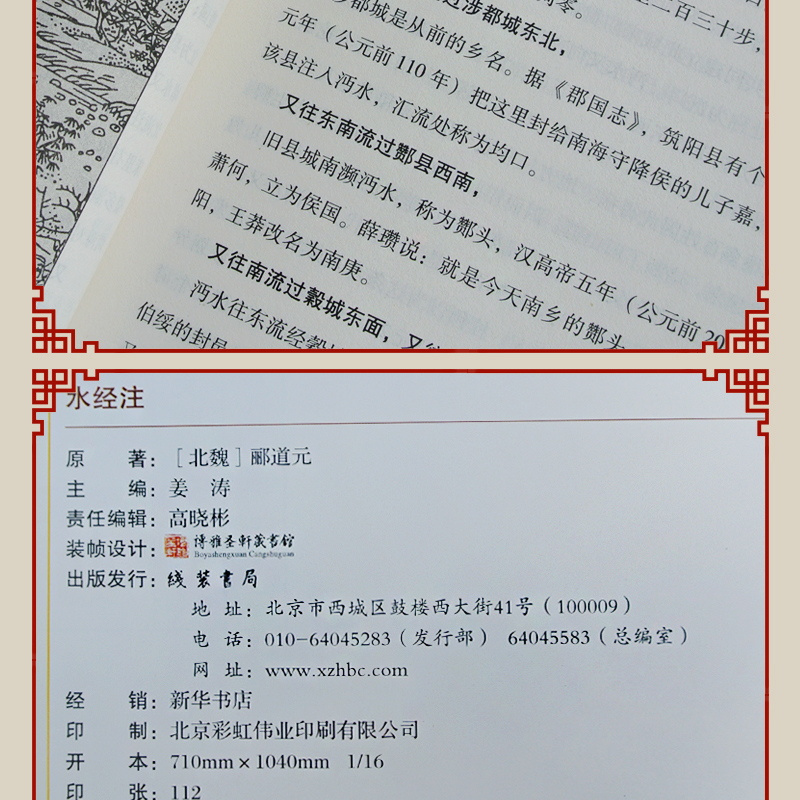 二百三十步，
过涉都城东北，
都城是从前的乡名。据《郡国志》，筑阳县有个
元年（公元前110年）把这里封给南海守降侯的儿子嘉，
该县注入沔水，汇流处称为均口。
又往东南流过酇县西南，
旧县城南濒沔水，称为酇头，汉高帝五年（公元前20
萧何，立为侯国。薛瓒说：就是今天南乡的酇头
阳，王莽改名为南庚。
又往南流过穀城东面，又
沔水往东流经穀
伯绥的封邑
水经注
原 著：［北魏］郦道元
主 编：姜 涛
责任编辑：高晓彬
装帧设计：博雅圣轩藏書館
Boyashengxuan Cangshuguan
出版发行：线装書局
地 址：北京市西城区鼓楼西大街41号（100009）
电 话：010-64045283（发行部） 64045583（总编室）
网 址：www.xzhbc.com
经 销：新华书店
印 制：北京彩虹伟业印刷有限公司
开 本：710mm×1040mm 1/16
印 张：112